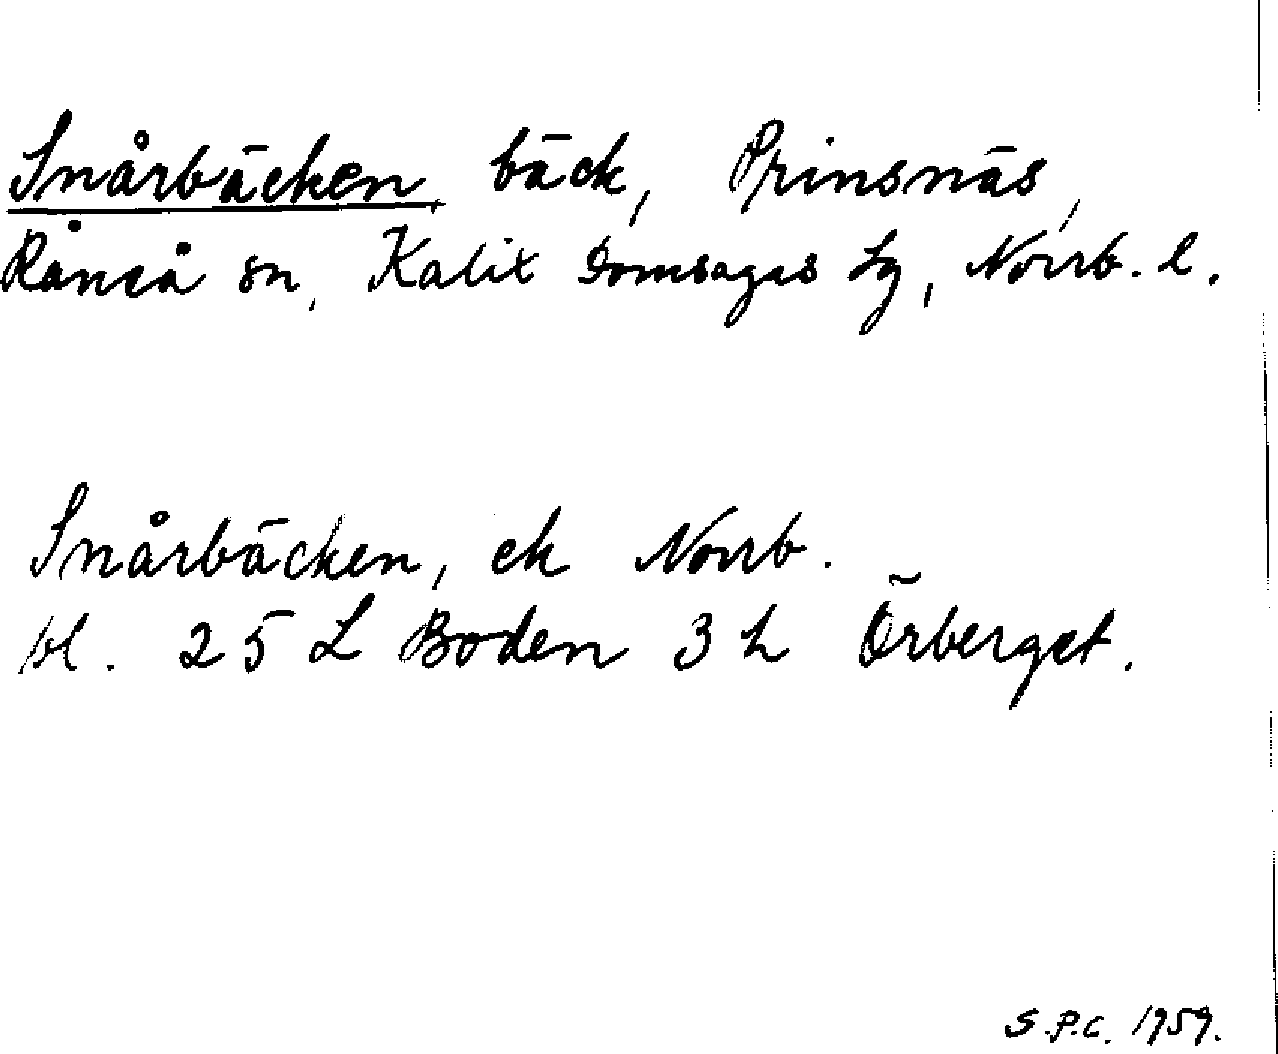 Snårbäcken, bäck, Prinsnäs,
Råneå sn, Kalix Domsagas tg, Norrb. l.
Snårbäcken, ek Norrb.
bl. 25 L Boden 3 h Örberget.
S.P.C. 1959.